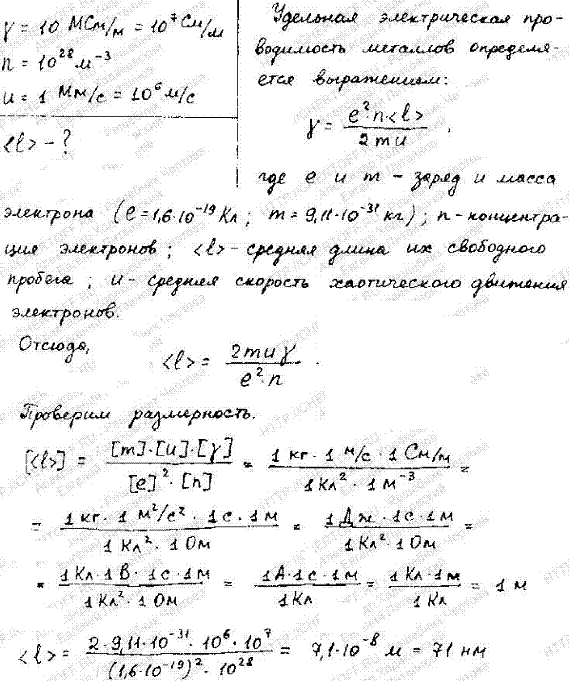 γ = 10 МСм/м = 10⁷ См/м
n = 10²⁸ м⁻³
u = 1 Мм/с = 10⁶ м/с
<l> - ?
Удельная электрическая про-
водимость металлов определя-
ется выражением:
γ = e²·n<l> / 2mu ,
где e и m - заряд и масса
электрона (e = 1,6·10⁻¹⁹ Кл ; m = 9,11·10⁻³¹ кг) ; n - концентра-
ция электронов ; <l> - средняя длина их свободного
пробега ; u - средняя скорость хаотического движения
электронов.
Отсюда,
<l> = 2muγ / e²·n .
Проверим размерность.
[<l>] = [m]·[u]·[γ] / [e]²·[n] = 1 кг · 1 м/с · 1 См/м / 1 Кл² · 1 м⁻³ =
= 1 кг · 1 м²/с² · 1 с · 1 м / 1 Кл² · 1 Ом = 1 Дж · 1с · 1м / 1 Кл² · 1 Ом =
= 1 Кл · 1 В · 1с · 1м / 1 Кл² · 1 Ом = 1А · 1с · 1м / 1 Кл = 1 Кл · 1м / 1 Кл = 1 м
<l> = 2 · 9,11·10⁻³¹ · 10⁶ · 10⁷ / (1,6·10⁻¹⁹)² · 10²⁸ = 7,1·10⁻⁸ м = 71 нм